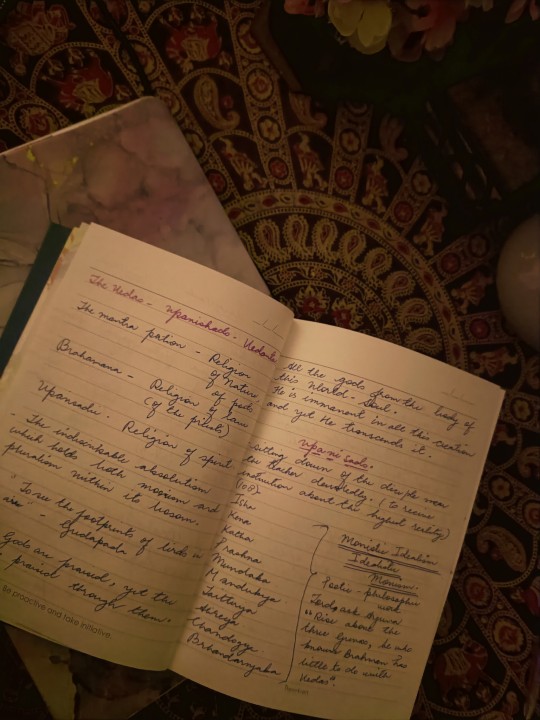 The Vedas - Upanishads - Vedanta
The mantra portion - Religion
of Nature
Brahmana - Religion of
Religion of Law
(of the priests)
Religion of spirit
- The indescribable absolution
which holds both monism and
pluralism within its bosom.
" To see the footprints of birds in
- Gudapada
Gods are praised, yet the
praised through them."
Be proactive and take initiative.
All the gods from the body of
this World - Soul.
He is immanent in all this creation
and yet He transcends it.
Upanisads.
sitting down of the disciple near
the teacher devotedly. (to receive
instruction about the highest reality)
(108)
Isha
Kena
Katha
Prashna
Mundaka
Mandukya
Taittiriya
Chandogya
Monistic Idealism
Idealistic
Monism.
Poetic - philosophic
work
"Rise above the
three Gunas, he who
knows Brahman has
little to do with
Vedas".